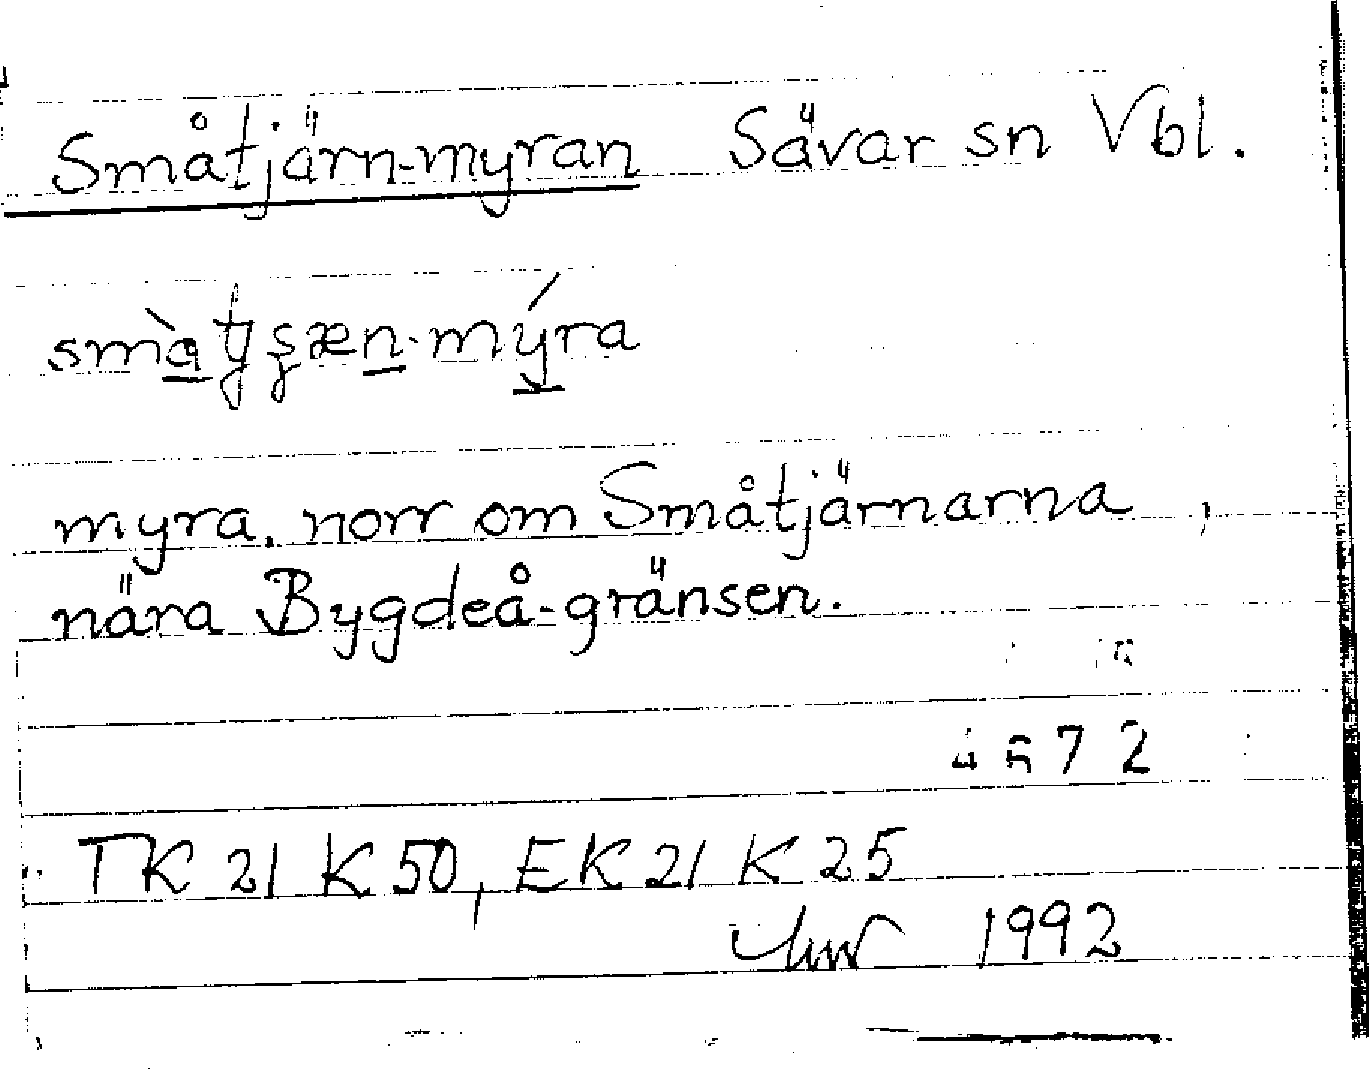 Småtjärn-myran Sävar sn Vbl.
myra, norr om Småtjärnarna,
nära Bygdeå-gränsen.
72
TK 21 K 50, EK 21 K 25
1992